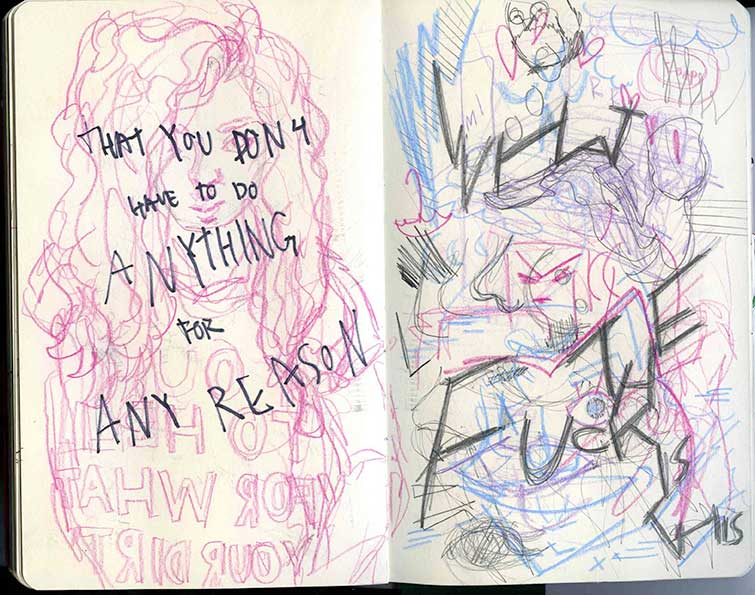 THAT YOU DON4
HAVE TO DO
ANYTHING
FOR
ANY REASON
YOU
FOR WHAT
YOUR DIRT
WHAT
THE
FUCK
IS
THIS